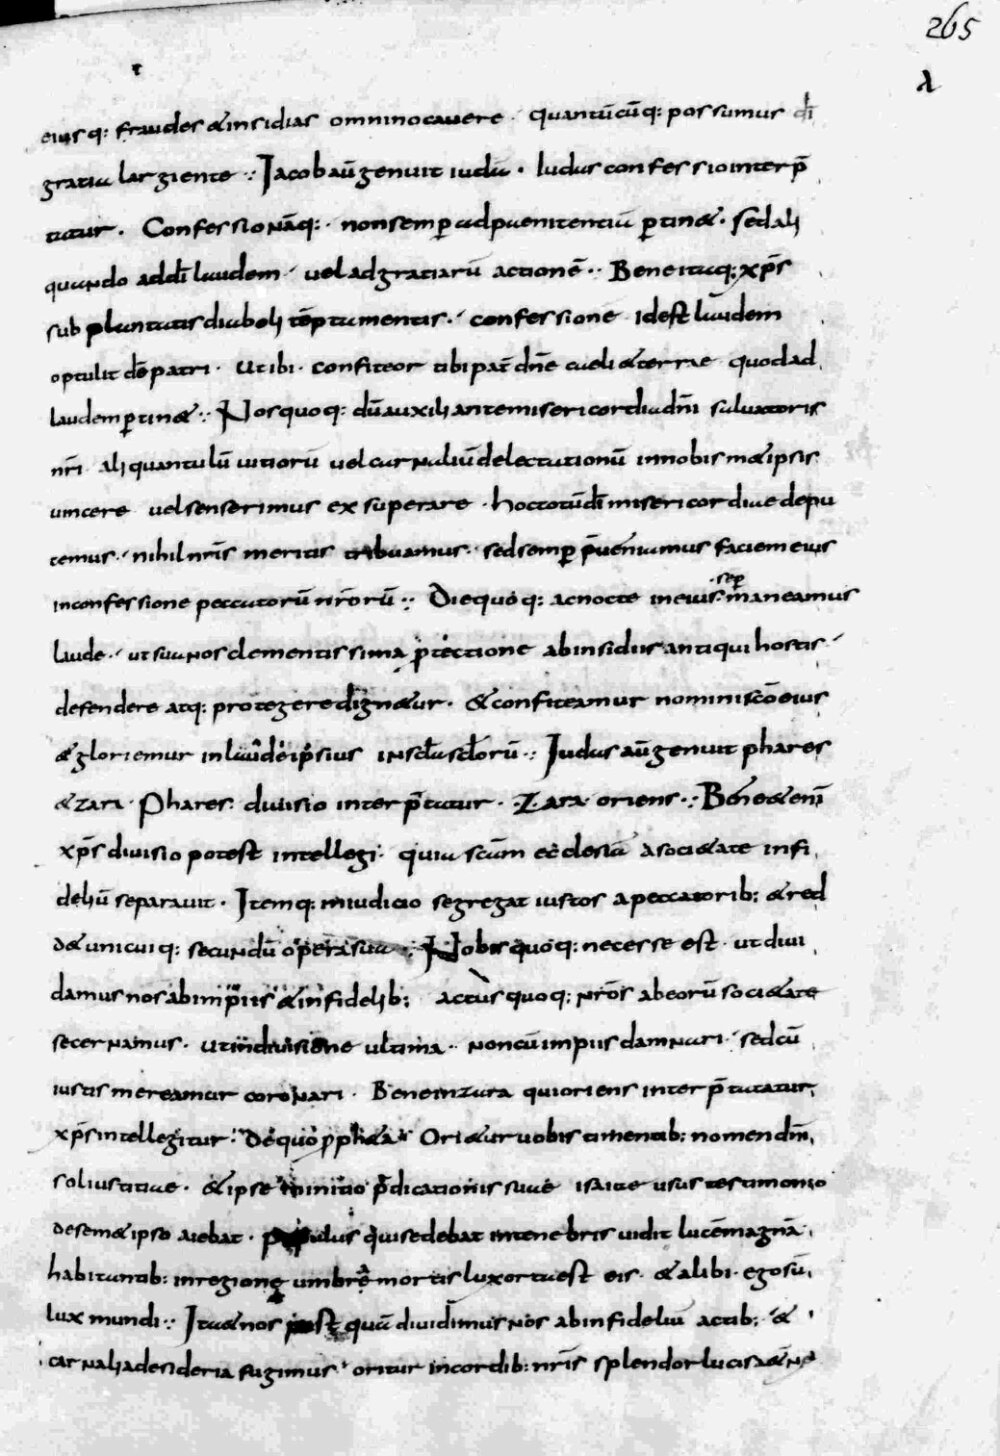 265
λ
eiusq: fraudes & insidias omnino cavere · quantūcūq: possumus dī
gratia largiente ∵ Jacob aūt genuit iudā · Iudas confessio interp̄
tatur · Confessio nāq: · non semp̄ ad paenitentiā p̄tin& · sed ali
quando ad dī laudem · vel ad gratiarū actionē ∵ Bene itaq: xp̄s
sub temptamentis · confessionē id est laudem
optulit dō patri · Ut ibi · confiteor tibi pat̄ dn̄e caeli & terrae quod ad
laudem p̄tin& ∵ Nos quoq: dū auxiliante misericordia dn̄i salvatoris
nr̄i aliquantulū vitiorū vel carnaliū delectationū in nobism&ipsis
vincere vel senserimus exsuperare · hoc totū dī misericordiae depu
temus · nihil nr̄is meritis tribuamus · sed semp̄ p̄veniamus faciem eius
in confessione peccatorū nr̄orū ∵ Die quoq: ac nocte in eius · sēp maneamus
laude · ut sua nos clementissima p̄tectione ab insidiis antiqui hostis
defendere atq: protegere dign&ur · & confiteamur nomini sc̄o eius
& gloriemur in laude ipsius in sc̄la sc̄lorū ∵ Judas aūt genuit phares
& zara · Phares · divisio interp̄tatur · Zara · oriens ∵ Bene & enī
xp̄s divisio potest intellegi · quia scām ecclesiā a soci&ate infi
deliū separavit · Itemq: in iudicio segregat iustos a peccatorib: & red
d& unicuiq: secundū opera sua ∵ Nobis quoq: necesse est · ut divi
damus nos ab impiis & infidelib: actus quoq: nr̄os ab eorū soci&ate
secernamus · ut in divisione ultima · non cū impiis damnari · sed cū
iustis mereamur coronari · Bene in zara qui oriens interp̄tatur
xp̄s intellegitur · De quo pph&a · Ori&ur vobis timentib: nomen dn̄i
sol iustitiae · & ipse in initio p̄dicationis suae isaiae usus testimonio
de sem&ipso aiebat · populus qui sedebat in tenebris vidit lucē magnā
habitantib: in regione umbrę mortis lux orta est eis · & alibi · ego sū
lux mundi ∵ Ita & nos post quā dividimus nos ab infideliū actib: &
carnalia desideria fugimus · oritur in cordib: nr̄is splendor lucis